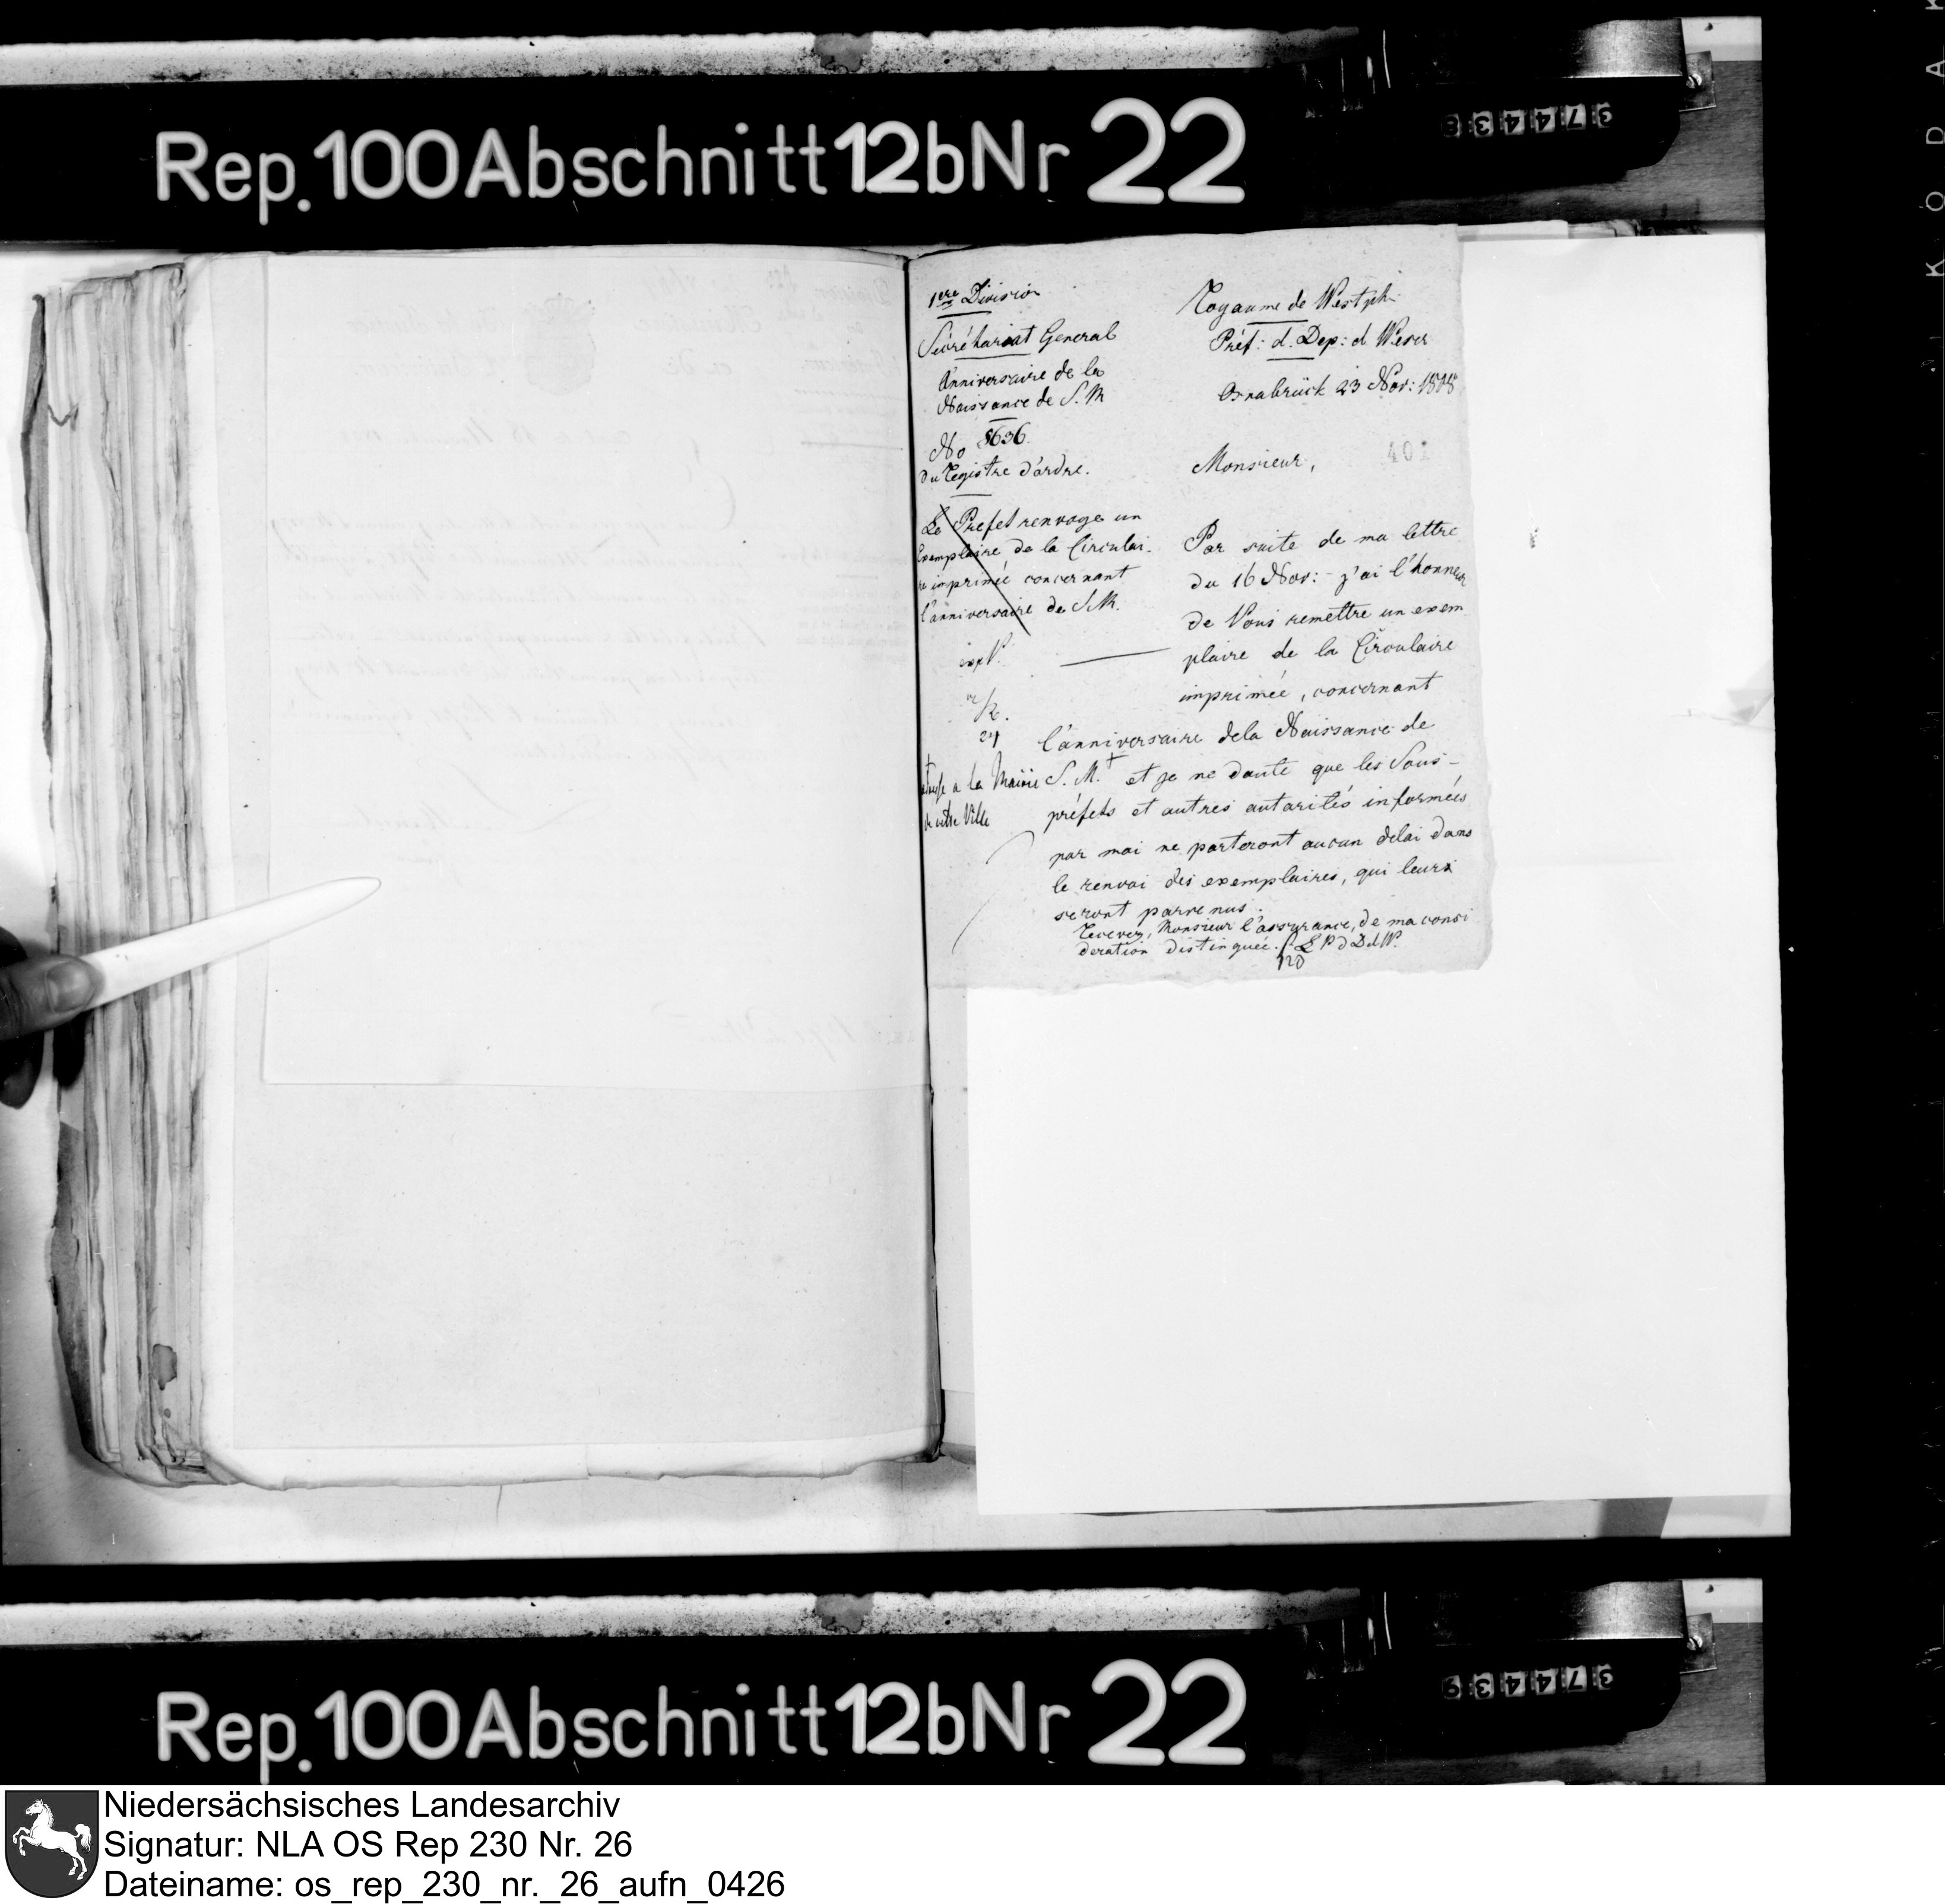 Rep. 100 Abschnitt 12b Nr 22
1ere Division
Secrétariat General
Anniversaire de la
Naissance de S. M
No 8636.
du Registre d'ordre.
Le Prefet renvoye un
Exemplaire de la Circulai-
re imprimée concernant
l'anniversaire de S. M.
expd.
24
a la Mairie
de cette Ville
Royaume de Westph:
Préf: d. Dep: d Weser
Osnabrück 23 Nov: 1808
401
Monsieur,
Par suite de ma lettre
du 16 Nov: j'ai l'honneur
de Vous remettre un exem
plaire de la Circulaire
imprimée, concernant
l'anniversaire dela Naissance de
S. M.† et je ne doute que les Sous-
préfets et autres autorités informées
par moi ne porteront aucun delai dans
le renvoi des exemplaires, qui leurs
seront parvenus.
Recevez, Monsieur l'assurance, de ma consi
deration distinguée. L P d D d W.
Rep. 100 Abschnitt 12b Nr 22
Niedersächsisches Landesarchiv
Signatur: NLA OS Rep 230 Nr. 26
Dateiname: os_rep_230_nr._26_aufn_0426